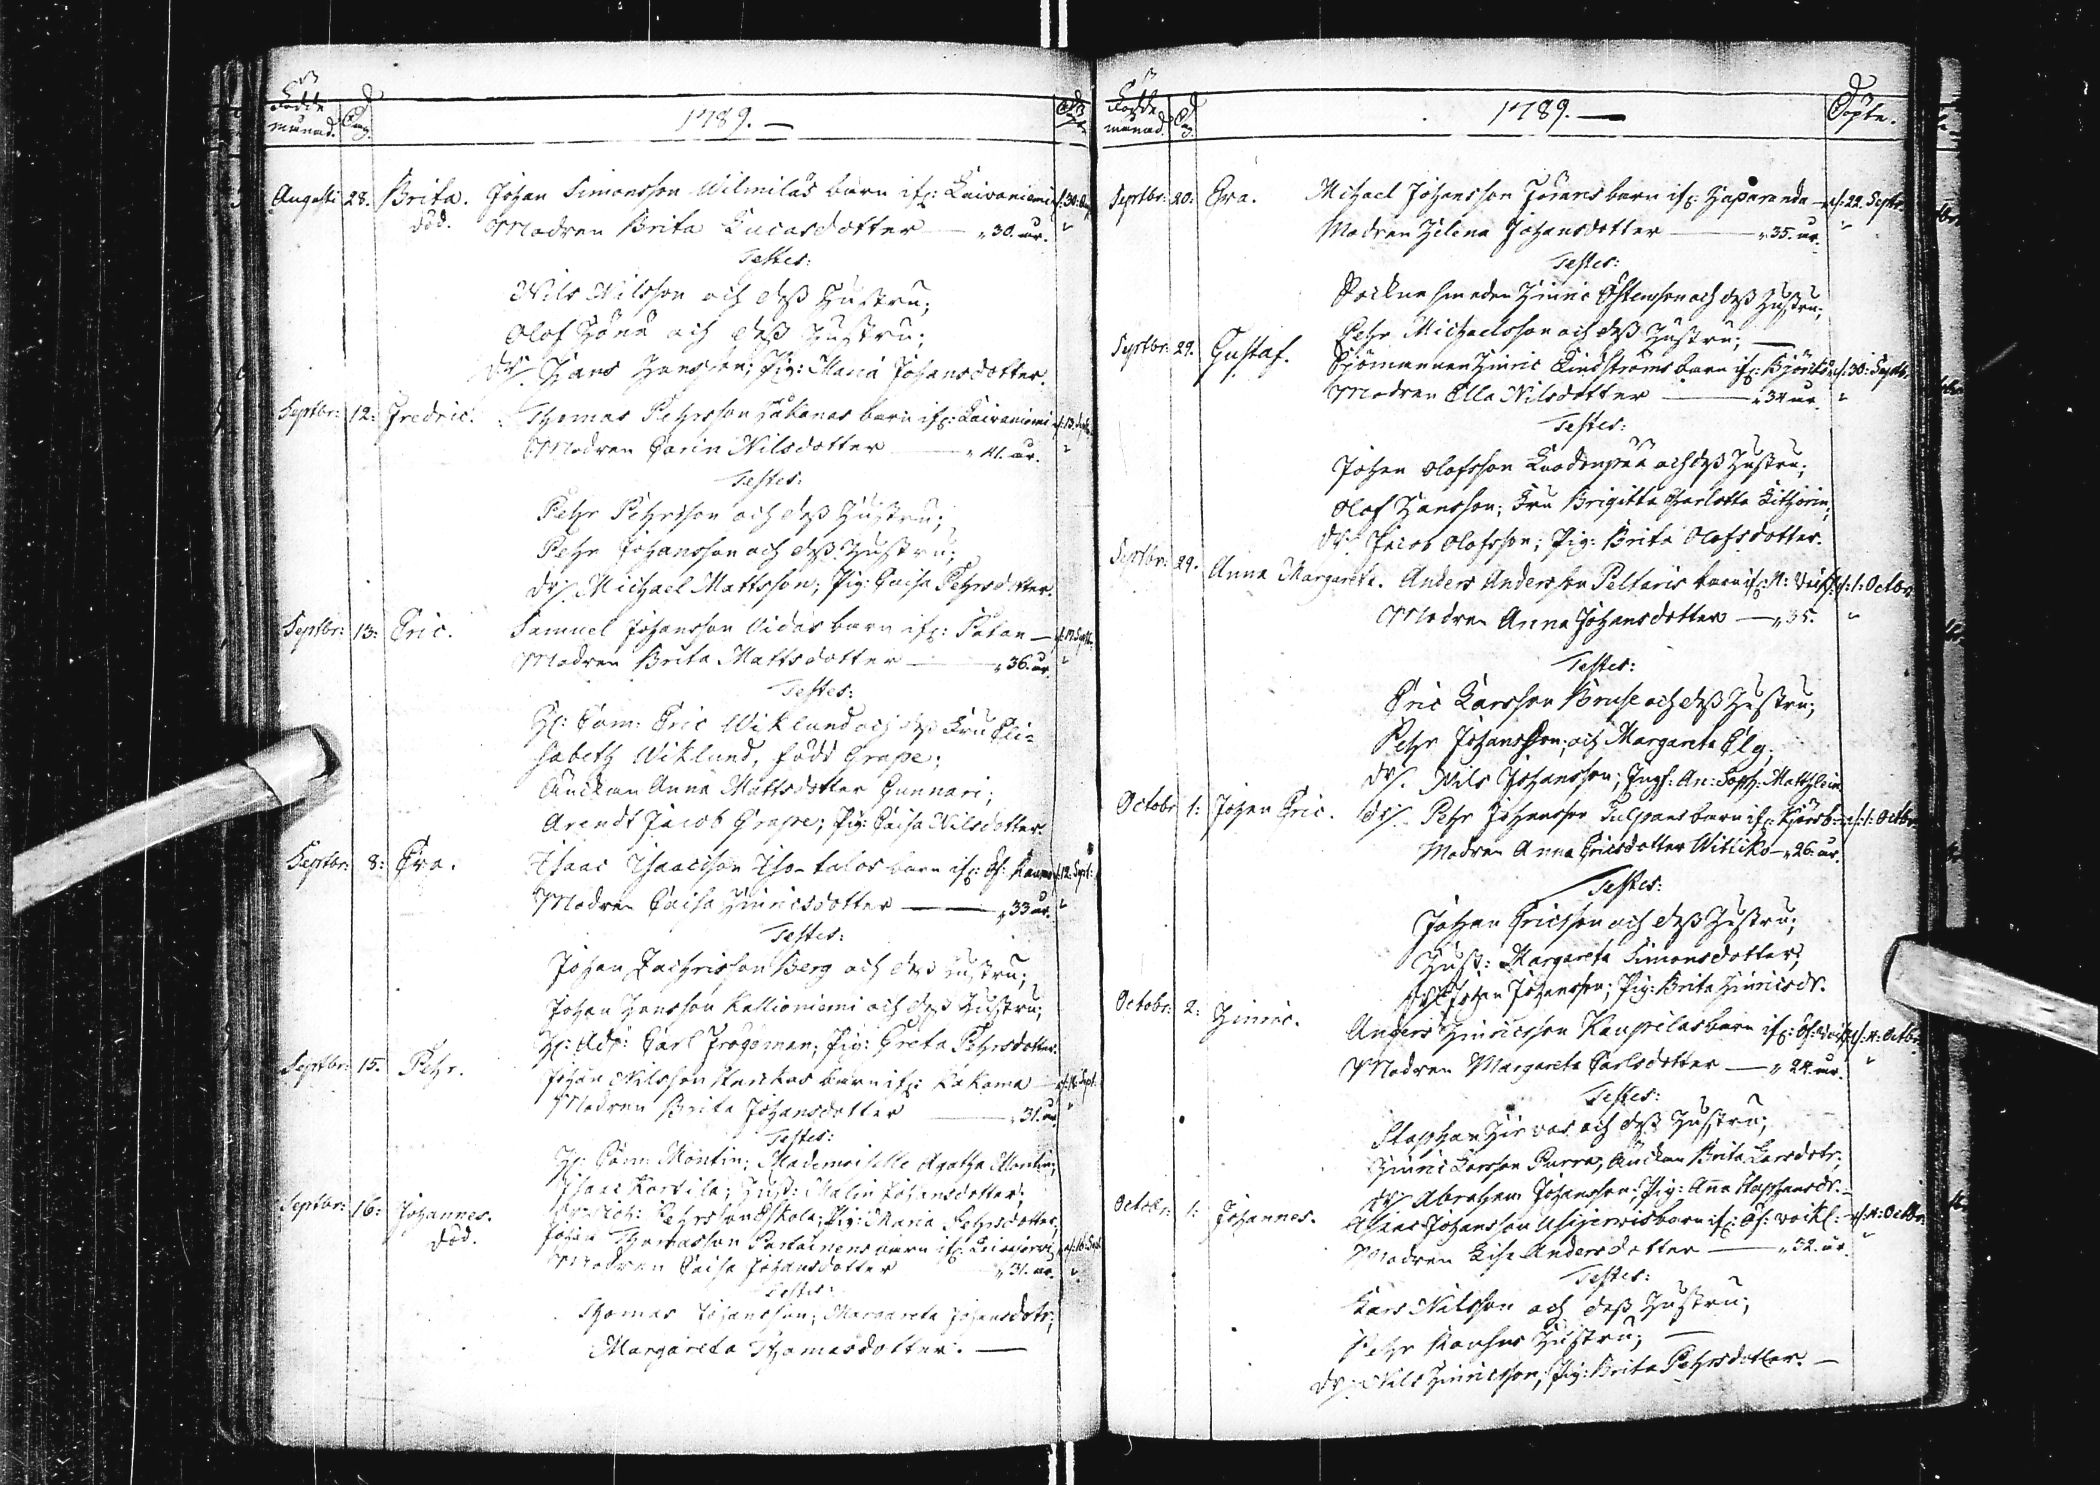 Födde månad. Dag. 1789. — Döpte
Augusti 28. Brita. Johan Simonsson Wilmilas barn if: Laivaniemi d. 30. Aug.
död. Modren Brita Lucasdotter — „ 30. år. „
Testes:
Nils Nilsson och dess Hustru;
Olof och dess Hustru;
dr/. Hans Hansson; Pig: Maria Johansdotter.
Septbr: 12: Fredric. Thomas Pehrsson barn if: Laivaniemi d. 13. Septbr.
Modren Carin Nilsdotter — „ 41. år. „
Testes:
Pehr Pehrsson och dess Hustru;
Pehr Johansson och dess Hustru;
dr/. Michael Mattsson; Pig: Caisa Pehrsdotter.
Septbr: 13: Eric. Samuel Johansson Vidas barn if: — d. 17. Septbr.
Modren Brita Mattsdotter — „ 36. år. „
Testes:
H: Com: Eric Wiklund och dess Fru Eli-
sabeth Wiklund, född Grape;
Änckan Anna Mattsdotter Gunnari;
Arendt Jacob Grape; Pig: Caisa Nilsdotter.
Septbr: 8: Eva. Isaac Isaacsson Iso-talos barn if: Öf: d. 12. Sept:
Modren Caisa Hinricsdotter — „ 33 år. „
Testes:
Johan Zachrisson Berg och dess Hustru;
Johan Hansson Kallioniemi och dess Hustru;
H: Adj: Carl Frogoman; Pig: Greta Pehrsdotter.
Septbr: 15. Pehr. Johan Nilsson barn if: Kakama — Sept:
Modren Brita Johansdotter — „ 31. år. „
Testes:
H: Com: Montin; Mademoiselle Agatha Montin;
Isaac Kortila; Hust: Malin Johansdotter;
Pehrsson Pig: Maria Pehrsdotter,
Septbr: 16: Johannes. Johan Thomasson Partainens barn if: d. 16. Sept.
död. Modren Caisa Johansdotter „ 31. år. „
Testes:
Thomas Johansson; Margareta Johansdotr;
Margareta Thomasdotter. —
Födde månad. Dag. 1789. — Döpte.
Septbr: 20: Eva. Michael Johansson Jörans barn if: Haparanda — d. 22. Septbr:
Modren Helena Johansdotter — „ 35. år. „
Testes:
Sockne smeden Hinric Östensson och dess Hustru;
Pehr Michaelsson och dess Hustru; —
Septbr: 29. Gustaf. Sjömannen Hinric Lindströms barn if: Björkön d. 30: Septbr.
Modren Ella Nilsdotter — „ 34 år. „
Testes:
Johan Olofsson och dess Hustru;
Olof Hansson; Fru Brigitta Charlotta
dr/. Jacob Olofsson; Pig: Brita Olofsdotter.
Septbr: 29. Anna Margareta. Anders Andersson Peltaris barn if: N: d: 1: Octbr:
Modren Anna Johansdotter — „ 35. „
Testes:
Eric Larsson Bruse och dess Hustru;
Pehr Johansson; och Margareta Elg;
dr/. Nils Johansson; Jngf: An: Soph: Matthlein
Octobr 1: Johan Eric. dr/. Pehr Johansson Tulpans barn if: d: 1: Octbr:
Modren Anna Ericsdotter Witicko — „ 26. år.
Testes:
Johan Ericsson och dess Hustru;
Hust: Margareta Simonsdotter;
dr/ Johan Johansson; Pig: Brita Hinricsdr.
Octobr: 2: Hinric. Anders Hinricsson Kaupilas barn if: Öf: d: 4: Octbr.
Modren Margareta Carlsdotter — „ 24. år. „
Testes:
Staphan och dess Hustru;
Hinric Larsson Purra; Änckan Brita Larsdotr;
dr/. Abraham Johansson; Pig: Anna Staphansdr. —
Octobr: 1: Johannes. Johansson barn if: Öf: Voickl: — d. 4: Octbr.
Modren Lisa Andersdotter — „ 32. år. „
Testes:
Lars Nilsson och dess Hustru;
Pehr Hustru; —
dr/. Nils Hinricsson; Pig: Brita Pehrsdotter. —